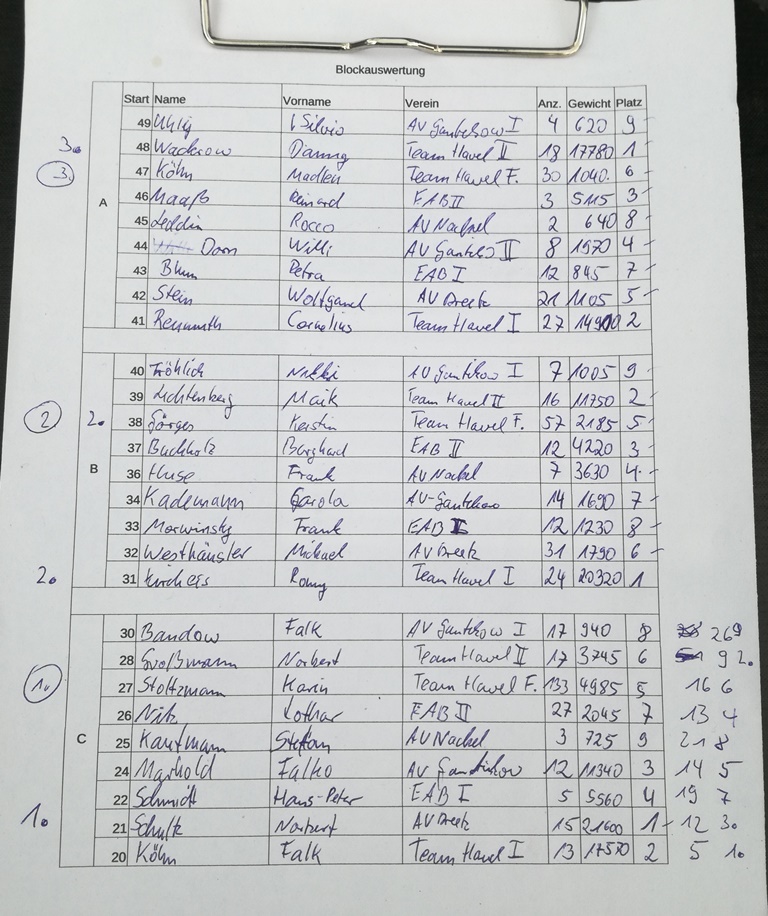 Blockauswertung
Start Name Vorname Verein Anz. Gewicht Platz
49 Uhlig Silvio AV Gantikow I 4 620 9
3. 48 Wadcrow Danny Team Havel II 18 17780 1
3. 47 Köhn Madlen Team Havel F. 30 1040. 6
A
46 Maaß Reinard EAB II 3 5115 3
45 Leddin Rocco AV Nackel 2 640 8
44 Dorn Willi AV Gantiko II 8 1970 4
43 Blum Petra EAB I 12 845 7
42 Stein Wolfgand AV Dreetz 21 1105 5
41 Cornelius Team Havel I 27 14900 2
40 Fröhlich AV Gantikow I 7 1005 9
39 Lichtenberg Maik Team Havel II 16 11750 2
2 2. 38 Görges Kerstin Team Havel F. 57 2185 5
37 Buchholz Burghard EAB II 12 4220 3
B
36 Huse Frank AV Nackel 7 3630 4
34 Kademann Carola AV-Gantikow 14 1690 7
33 Morwinsky Frank EAB I 12 1230 8
32 Westhäusler Michael AV Dreetz 31 1790 6
2. 31 Romy Team Havel I 24 20320 1
30 Bandow Falk AV Gantikow I 17 940 8 26 9
28 Großmann Norbert Team Havel II 17 3745 6 9 2.
1. 27 Stoltzmann Karin Team Havel F. 133 4985 5 16 6
26 Nitz Lothar EAB II 27 2045 7 13 4
C
25 Kaufmann Stefan AV Nackel 3 725 9 21 8
24 Marhold Falko AV Gantikow 12 11340 3 14 5
22 Schmidt Hans-Peter EAB I 5 5560 4 19 7
1. 21 Schultz Norbert AV Dreetz 15 21600 1 12 3.
20 Köhn Falk Team Havel I 13 17570 2 5 1.